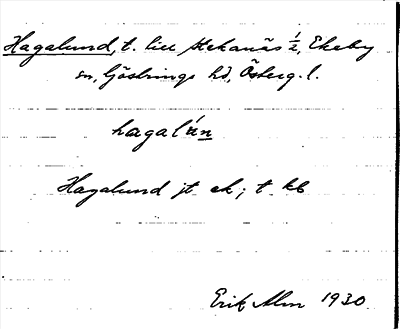 Hagalund, t. lill Stekanäs 1/2, Ekeby
sn, Göstrings hd, Österg. l.
hagalún
Hagalund jt ek; t kb
Erik Alm 1930